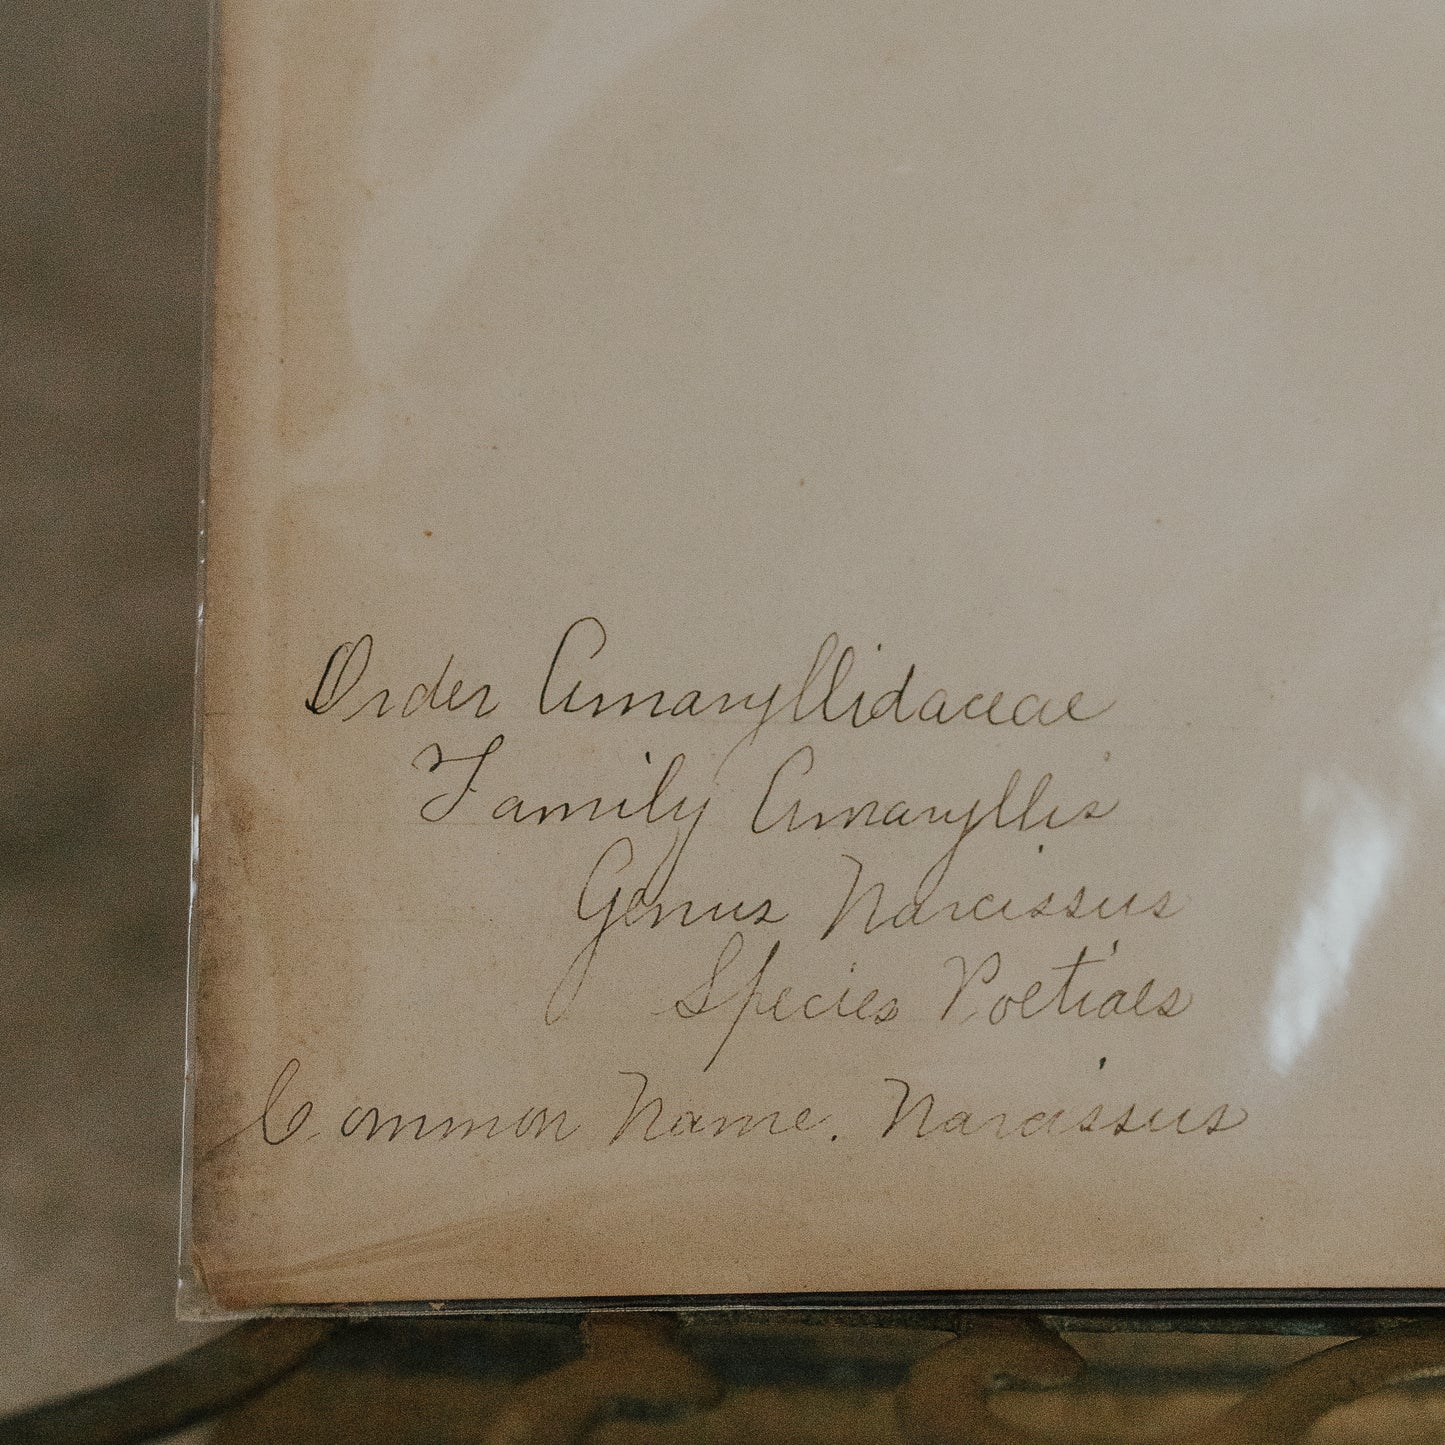 Order Amaryllidaceae
Family Amaryllis
Genus Narcissus
Species Poetiaes
Common Name. Narcissus